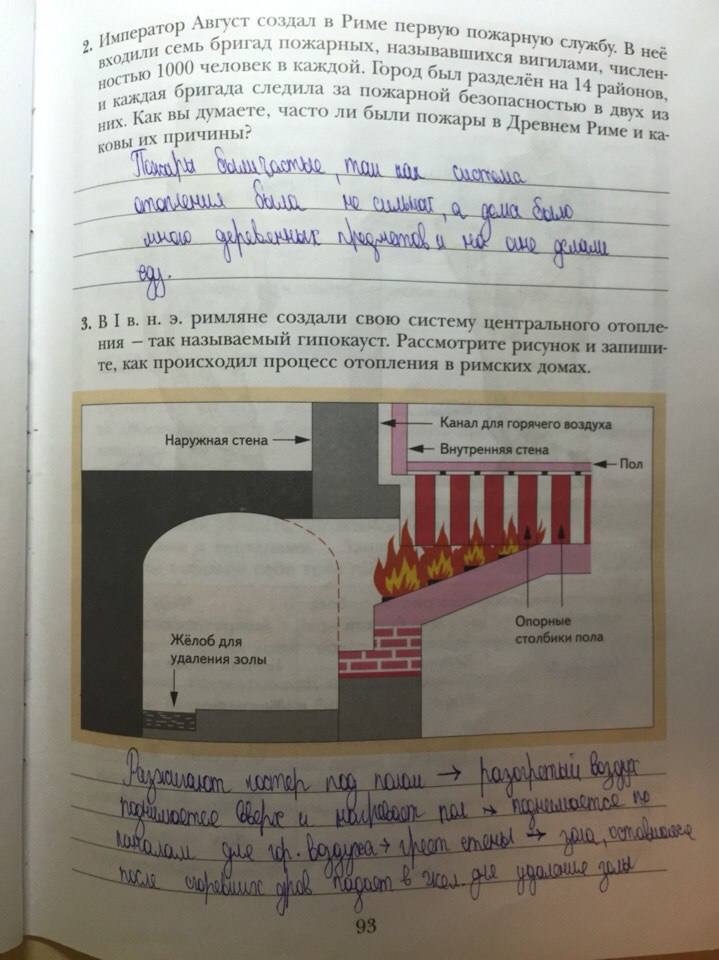 2. Император Август создал в Риме первую пожарную службу. В неё
входили семь бригад пожарных, называвшихся вигилами, числен-
ностью 1000 человек в каждой. Город был разделён на 14 районов,
и каждая бригада следила за пожарной безопасностью в двух из
них. Как вы думаете, часто ли были пожары в Древнем Риме и ка-
ковы их причины?
Пожары были частые, так как система
отопления была не сильной, а дома было
много деревянных предметов и на огне делали
еду.
3. В I в. н. э. римляне создали свою систему центрального отопле-
ния — так называемый гипокауст. Рассмотрите рисунок и запиши-
те, как происходил процесс отопления в римских домах.
Наружная стена
Канал для горячего воздуха
Внутренняя стена
Пол
Опорные
столбики пола
Жёлоб для
удаления золы
Разжигают костер под полом → разогретый воздух
поднимается вверх и нагревает пол → поднимается по
каналам для гор. воздуха → греет стены → зола, оставшаяся
после сгоревших дров падает в жел. для удаления золы
93